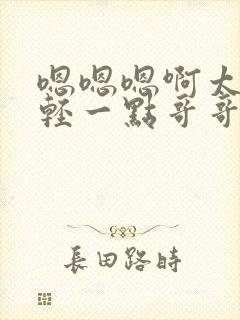 嗯嗯嗯啊太
輕一點哥哥
長田路時